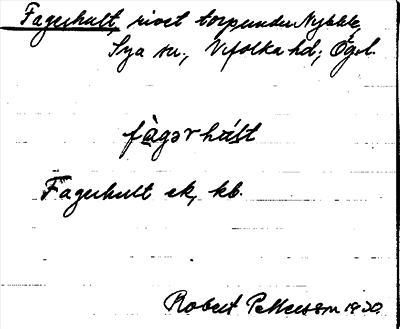 Fagerhult, rivet torp under Nybble,
Sya sn., Vifolka hd., Ögl.
fàgərhúlt
Fagerhult ek, kb.
Robert Pettersson 1920